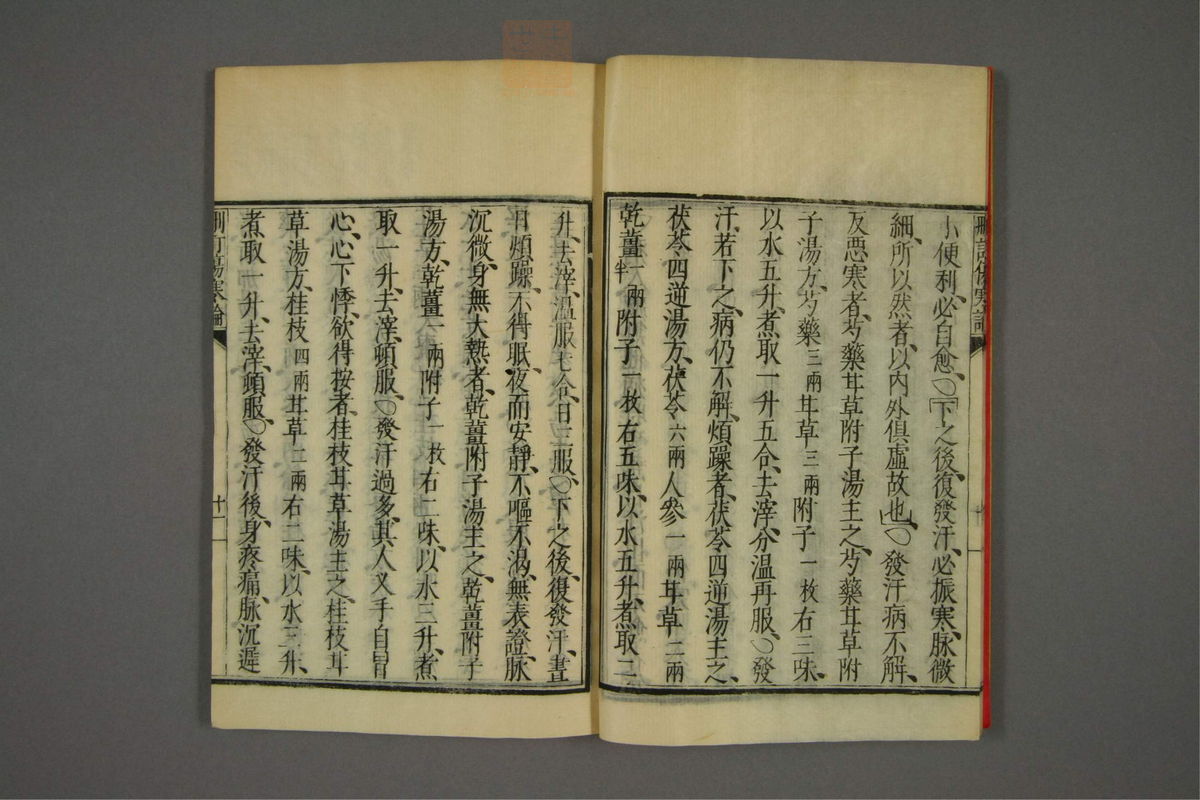 刪訂傷寒論
小便利、必自愈、○「下之後、復發汗、必振寒、脉微
細、所以然者、以内外俱虛故也、」○發汗病不解、
反惡寒者、芍藥甘草附子湯主之、芍藥甘草附
子湯方、芍藥三兩甘草三兩附子一枚右三味、
以水五升、煮取一升五合、去滓、分溫再服、○發
汗、若下之、病仍不解、煩躁者、茯苓四逆湯主之、
茯苓四逆湯方、茯苓六兩人參一兩甘草二兩
乾薑一兩半附子一枚右五味、以水五升、煮取二
升、去滓、溫服七合、日三服、○下之後、復發汗、晝
日煩躁、不得眠、夜而安靜、不嘔不渴、無表證、脉
沉微、身無大熱者、乾薑附子湯主之、乾薑附子
湯方、乾薑一兩附子一枚右二味、以水三升、煮
取一升、去滓、頓服、○發汗過多、其人叉手自冒
心、心下悸、欲得按者、桂枝甘草湯主之、桂枝甘
草湯方、桂枝四兩甘草二兩右二味、以水三升、
煮取一升、去滓、頓服、○發汗後、身疼痛、脉沉遲
刪訂傷寒論
十一